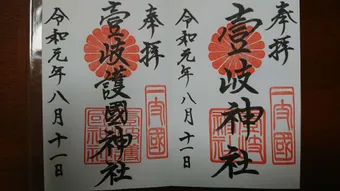 奉拝
一支國
壹岐神社
令和元年八月十一日
奉拝
一支國
壹岐護國神社
令和元年八月十一日